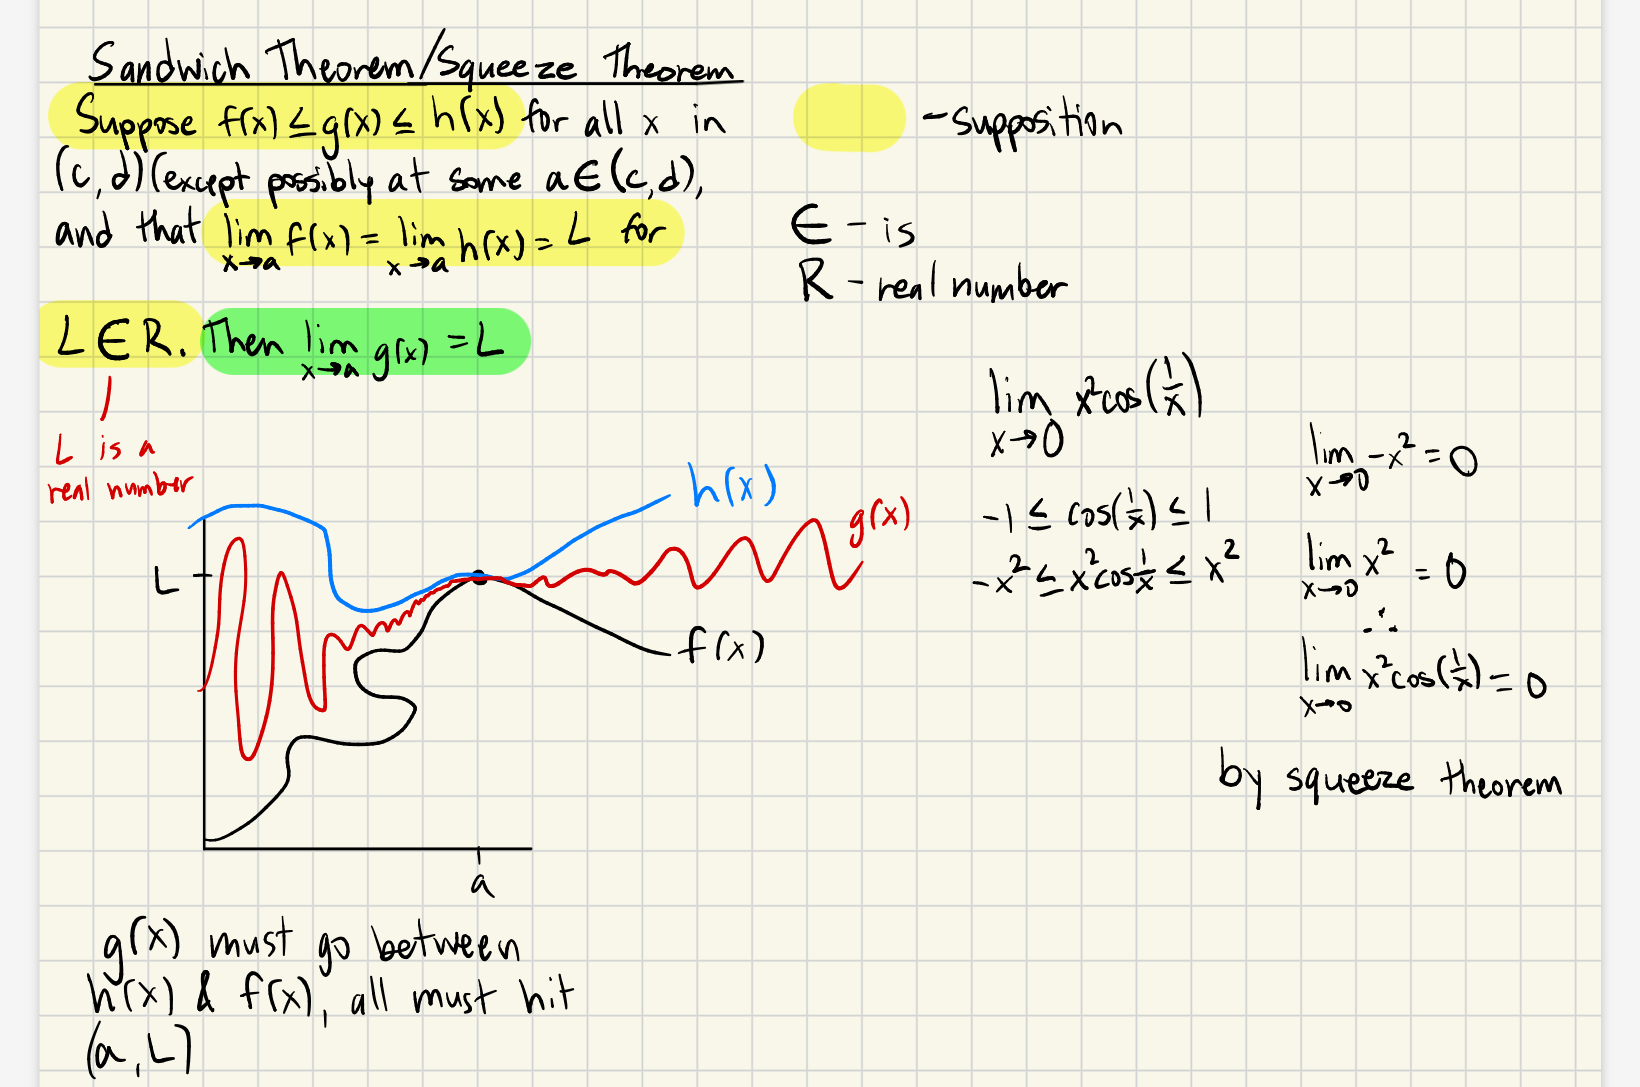 Sandwich Theorem/Squeeze Theorem
Suppose f(x) ≤ g(x) ≤ h(x) for all x in
(c,d) (except possibly at some a∈(c,d),
and that lim x→a f(x) = lim x→a h(x) = L for
L ∈ R. Then lim x→a g(x) = L
L is a
real number
- supposition
∈ - is
R - real number
h(x)
g(x)
f(x)
L
a
g(x) must go between
h(x) & f(x), all must hit
(a, L)
lim x→0 x²cos(1/x)
-1 ≤ cos(1/x) ≤ 1
-x² ≤ x²cos 1/x ≤ x²
lim x→0 -x² = 0
lim x→0 x² = 0
∴
lim x→0 x²cos(1/x) = 0
by squeeze theorem